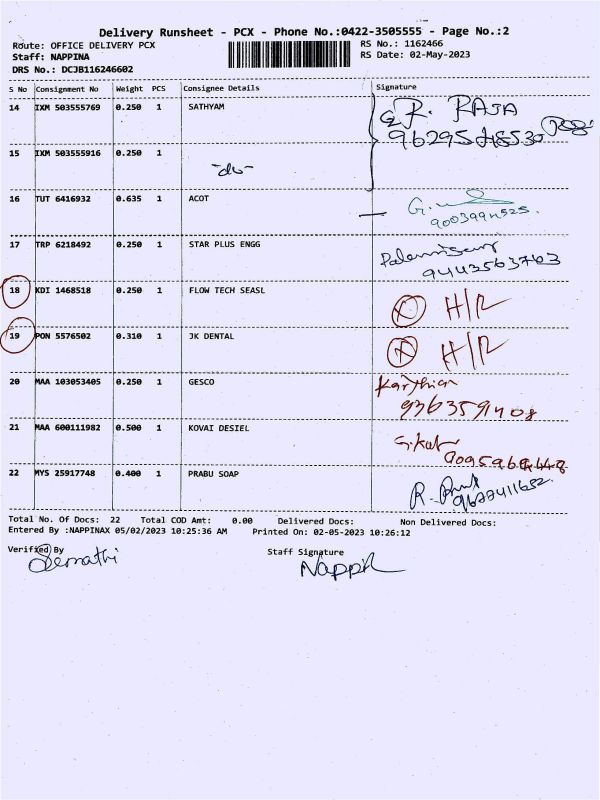 Delivery Runsheet - PCX - Phone No.:0422-3505555 - Page No.:2
Route: OFFICE DELIVERY PCX
RS No.: 1162466
Staff: NAPPINA
RS Date: 02-May-2023
DRS No.: DCJB116246602
S No Consignment No Weight PCS Consignee Details Signature
14 IXM 503555769 0.250 1 SATHYAM R. RAJA
9629548530
15 IXM 503555916 0.250 1 -do-
16 TUT 6416932 0.635 1 ACOT G.
9003994525.
17 TRP 6218492 0.250 1 STAR PLUS ENGG
9443563763
18 KDI 1468518 0.250 1 FLOW TECH SEASL H/R
19 PON 5576502 0.310 1 JK DENTAL H/R
20 MAA 103053405 0.250 1 GESCO Karthian
9363591408
21 MAA 600111982 0.500 1 KOVAI DESIEL
22 MYS 25917748 0.400 1 PRABU SOAP R.
9677411652.
Total No. Of Docs: 22 Total COD Amt: 0.00 Delivered Docs: Non Delivered Docs:
Entered By :NAPPINAX 05/02/2023 10:25:36 AM Printed On: 02-05-2023 10:26:12
Verified By Staff Signature